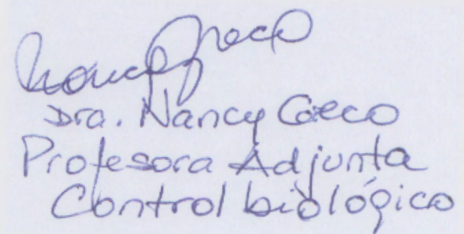 Nancy Greco
Dra. Nancy Greco
Profesora Adjunta
Control biológico